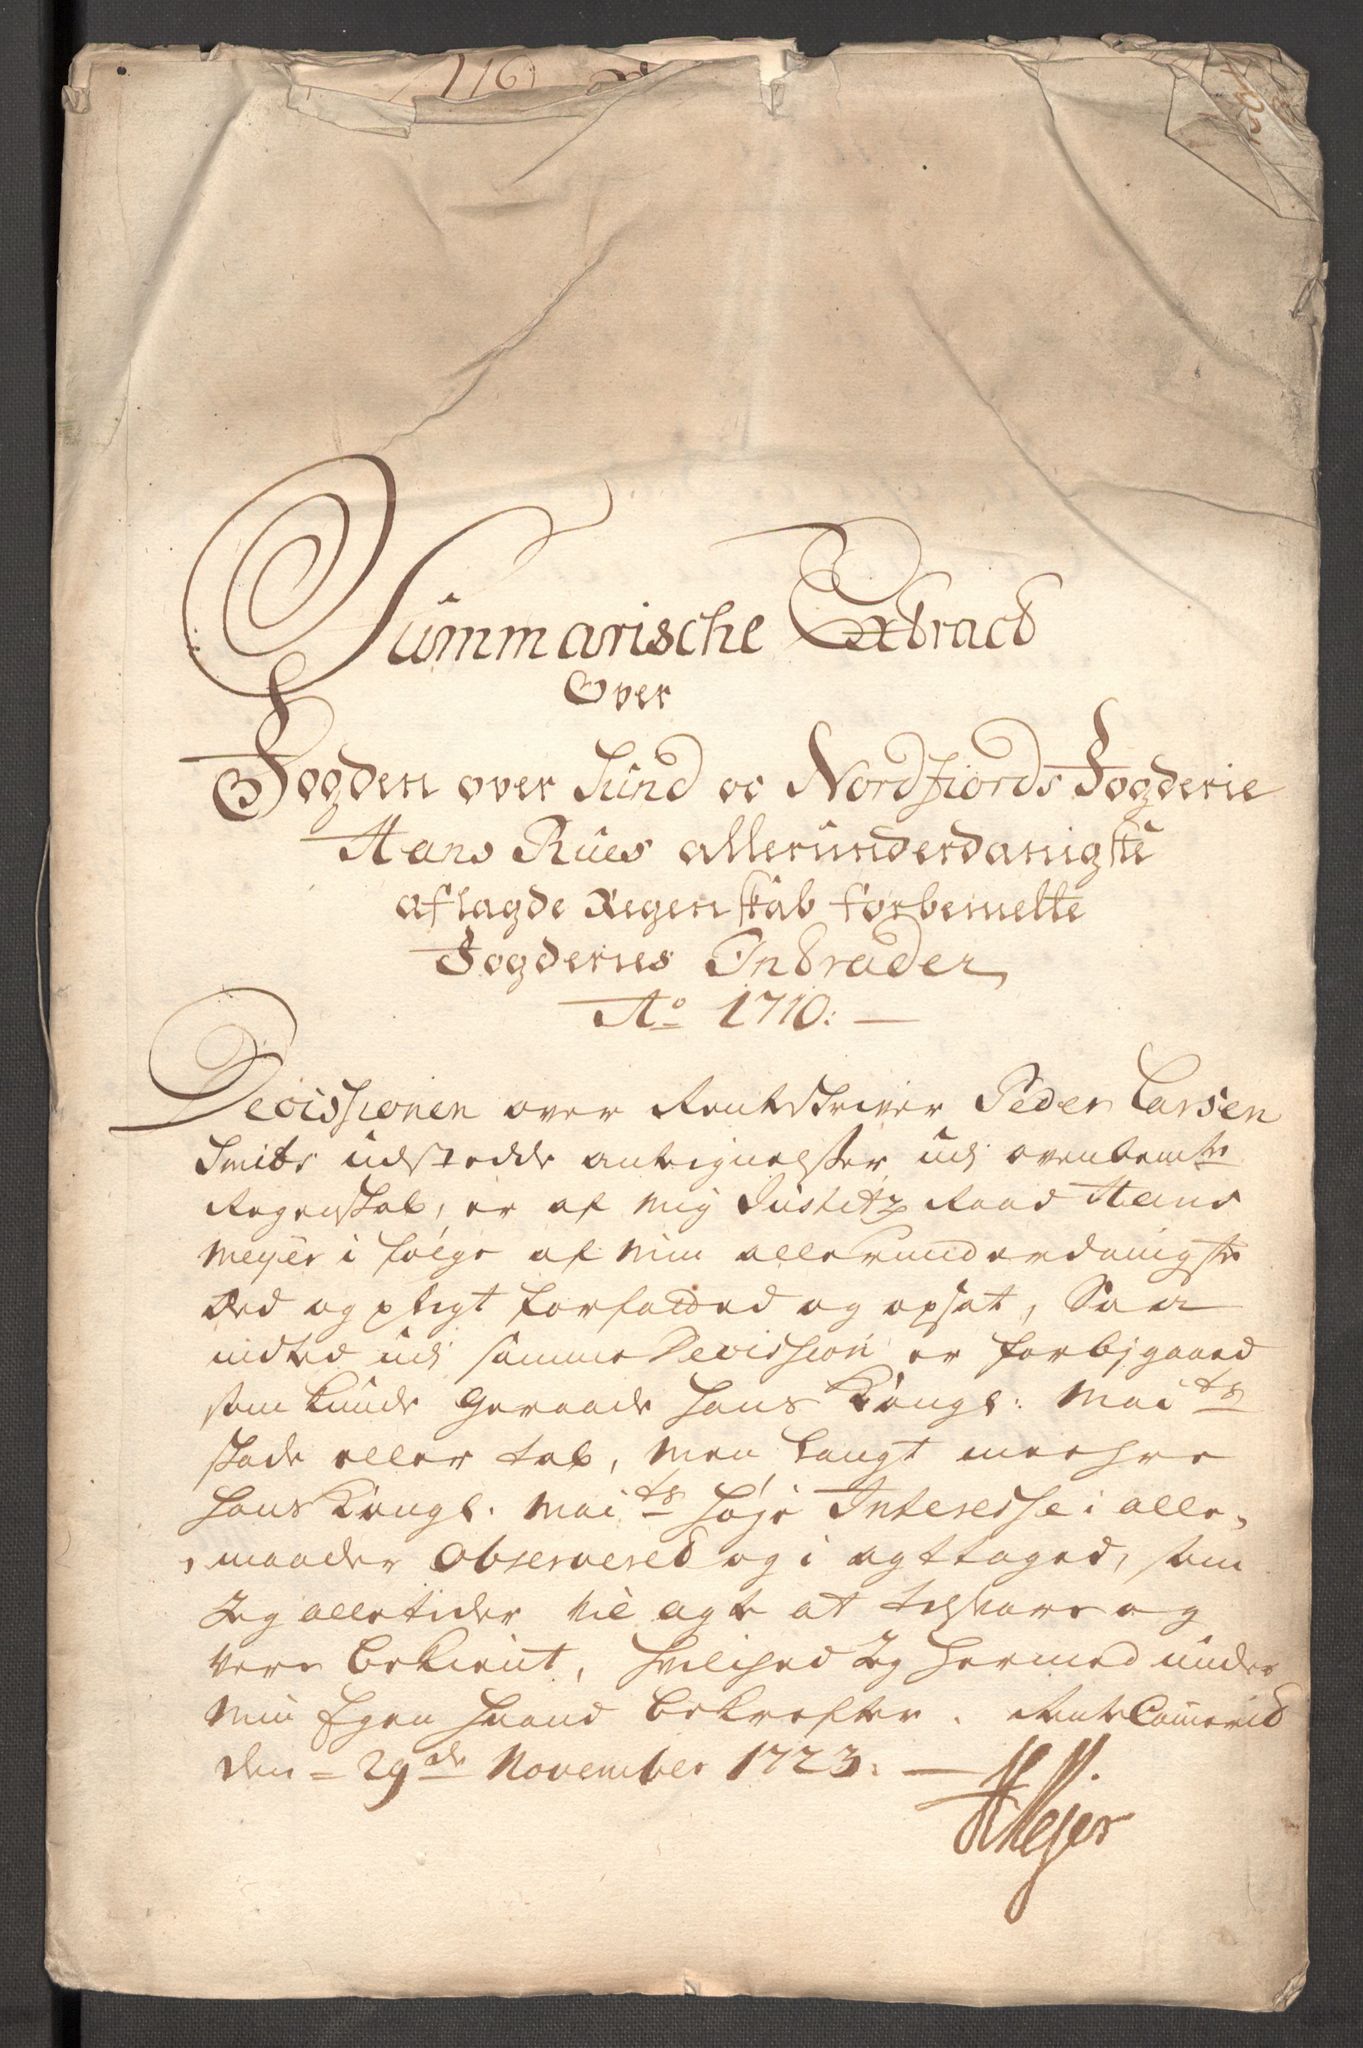 116
Summarische Extract
Over
Fogden over Sund oc Nordfiords Fogderie
Hans Rües allerunderdanigste
aflagde Regenskab forbemelte
Fogderies Intrader
Ao 1710:
Decissionen over Rentskriver Peder Larsen
Smits udstedde antegnelsser udj ovenbemte
Regenskab, er af mig Justitz Raad Hans
Meyer i følge af min allerunderdanigste
Eed og pligt forfatted og opsat, Saa at
intted udj samme Decission er forbjgaaed
som kunde geraade hans Kongl: Maits
skade eller tab, men langt meehre
hans Kongl. Maits høje Interesse i alle
maader observered og i agttaged, som
Jeg alletider vil agte at tilsvare og
vere bekient, hvilched Jeg hermed under
min Egen Haand bekrefter. RenteCammerit
den 29de November 1723.
HMejer